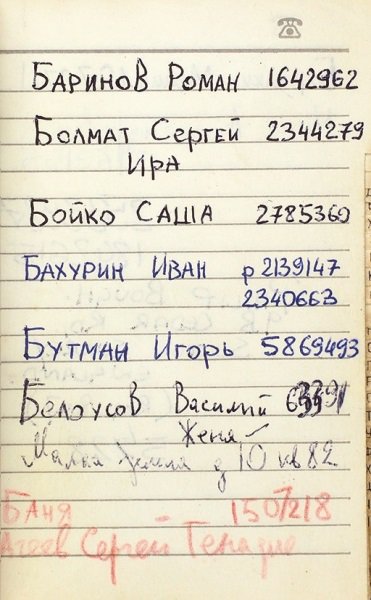 Баринов Роман 1642962
Болмат Сергей 2344279
Ира
Бойко Саша 2785360
Бахурин Иван р 2139147
2340663
Бутман Игорь 5869493
Белоусов Василий
Женя
Малая д 10 кв 82
Баня 1507218
Агеев Сергей